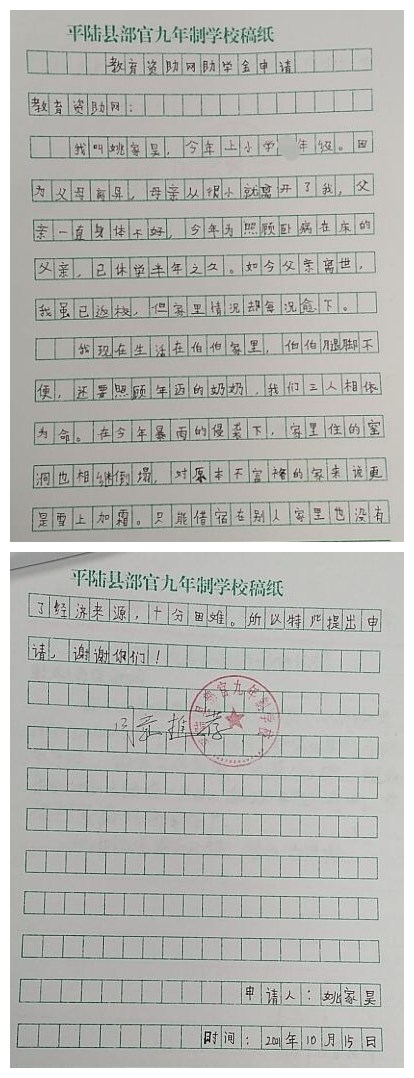 平陆县部官九年制学校稿纸
教育资助网助学金申请
教育资助网:
我叫姚家昊,今年上小学年级。因
为父母离异,母亲从很小就离开了我,父
亲一直身体不好,今年为照顾卧病在床的
父亲,已休学半年之久。如今父亲离世,
我虽已返校,但家里情况却每况愈下。
我现在生活在伯伯家里,伯伯腿脚不
便,还要照顾年迈的奶奶,我们三人相依
为命。在今年暴雨的侵袭下,家里住的窑
洞也相继倒塌,对原本不富裕的家来说更
是雪上加霜。只能借宿在别人家里也没有
平陆县部官九年制学校稿纸
了经济来源,十分困难。所以特此提出申
请,谢谢你们!
同意推荐
部官九年制学校
申请人:姚家昊
时间:2021年10月15日